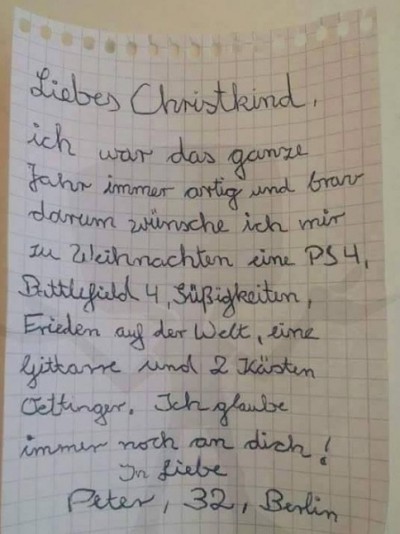 Liebes Christkind,
ich war das ganze
Jahr immer artig und brav
darum wünsche ich mir
zu Weihnachten eine PS4,
Battlefield 4, Süßigkeiten,
Frieden auf der Welt, eine
Gittarre und 2 Kästen
Oettinger. Ich glaube
immer noch an dich!
In Liebe
Peter, 32, Berlin